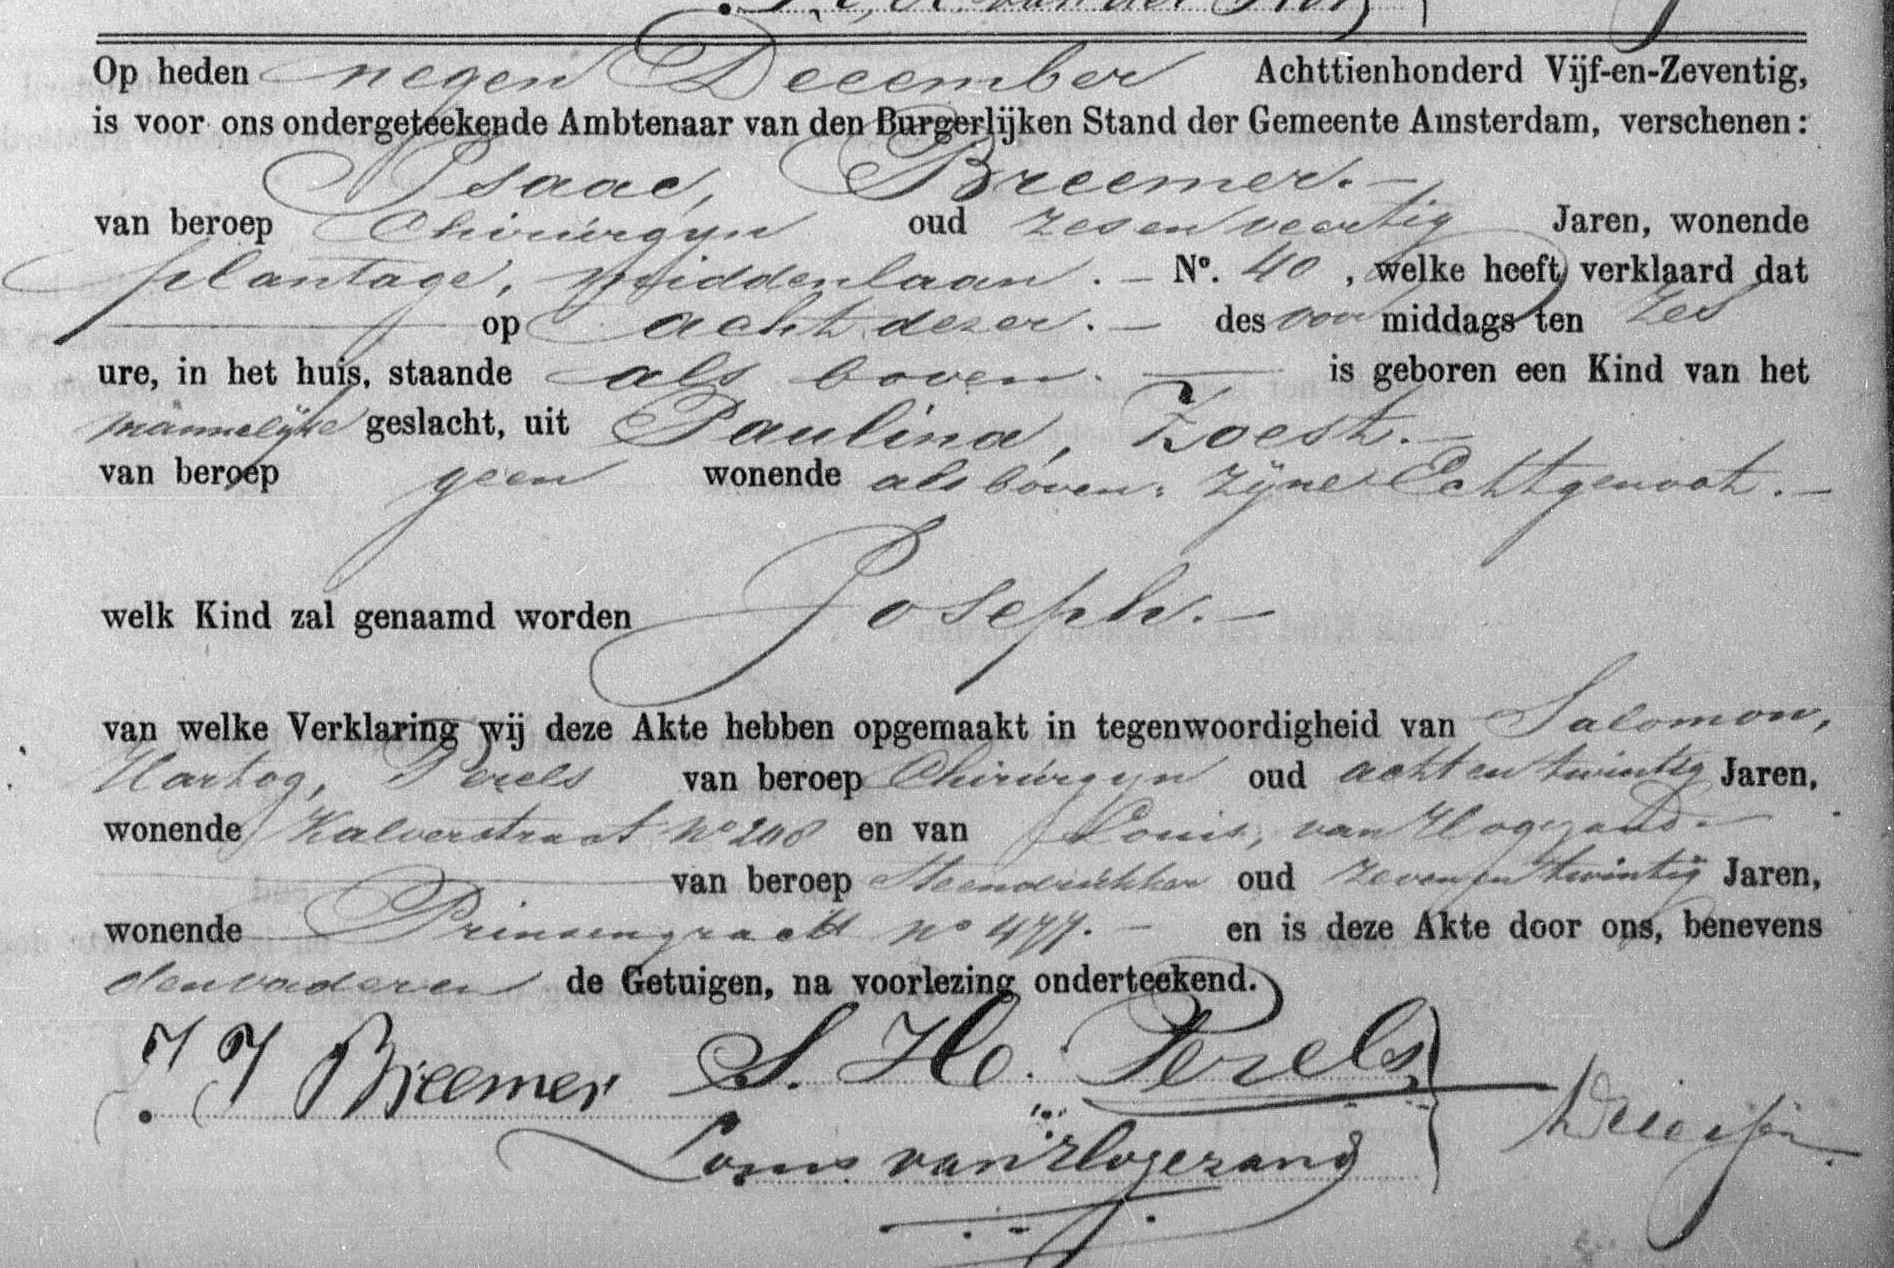 Op heden negen December Achttienhonderd Vijf-en-Zeventig,
is voor ons ondergeteekende Ambtenaar van den Burgerlijken Stand der Gemeente Amsterdam, verschenen:
Isaac, Breemer. —
van beroep Chirurgyn oud zes en veertig Jaren, wonende
plantage, middenlaan. — N°. 40, welke heeft verklaard dat
op acht dezer. — des voor middags ten zes
ure, in het huis, staande als boven. — is geboren een Kind van het
mannelijke geslacht, uit Paulina, Zoest. —
van beroep geen wonende als boven, zijne Echtgenoot. —
welk Kind zal genaamd worden Joseph. —
van welke Verklaring wij deze Akte hebben opgemaakt in tegenwoordigheid van Salomon,
Hartog, Perels van beroep Chirurgyn oud acht en twintig Jaren,
wonende Kalverstraat no 208 en van Louis, van Hogezand. —
van beroep Steendrukker oud zeven en twintig Jaren,
wonende Prinsengracht no 477. — en is deze Akte door ons, benevens
den vader en de Getuigen, na voorlezing onderteekend.
I I Breemer S. H. Perels
Louis van Hogezand